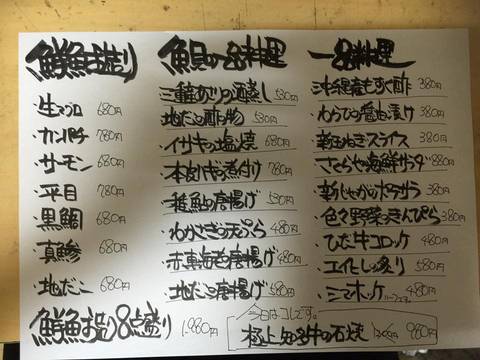 鮮魚お造り
生マグロ 680円
カンパチ 780円
サーモン 680円
平目 780円
黒鯛 680円
真鯵 680円
地だこ 680円
鮮魚お造り8点盛り 1,980円
魚貝の一品料理
三重産あさりの酒蒸し 530円
地だこの酢の物 530円
イサキの塩焼 680円
本カレイの煮付け 780円
稚鮎の唐揚げ 530円
・わかさぎの天ぷら 480円
・赤車海老唐揚げ 480円
・地だこの唐揚げ 580円
一品料理
沖縄産もずく酢 380円
・わらびの醤油漬け 380円
・新玉ねぎスライス 380円
・さくらや海鮮サラダ 880円
・新じゃがのポテサラ 380円
・色々野菜のきんぴら 380円
・ひだ牛コロッケ 480円
・エイヒレの炙り 580円
・シマホッケ ハーフです。 480円
今日はコレです。
極上知多牛の石焼 980円